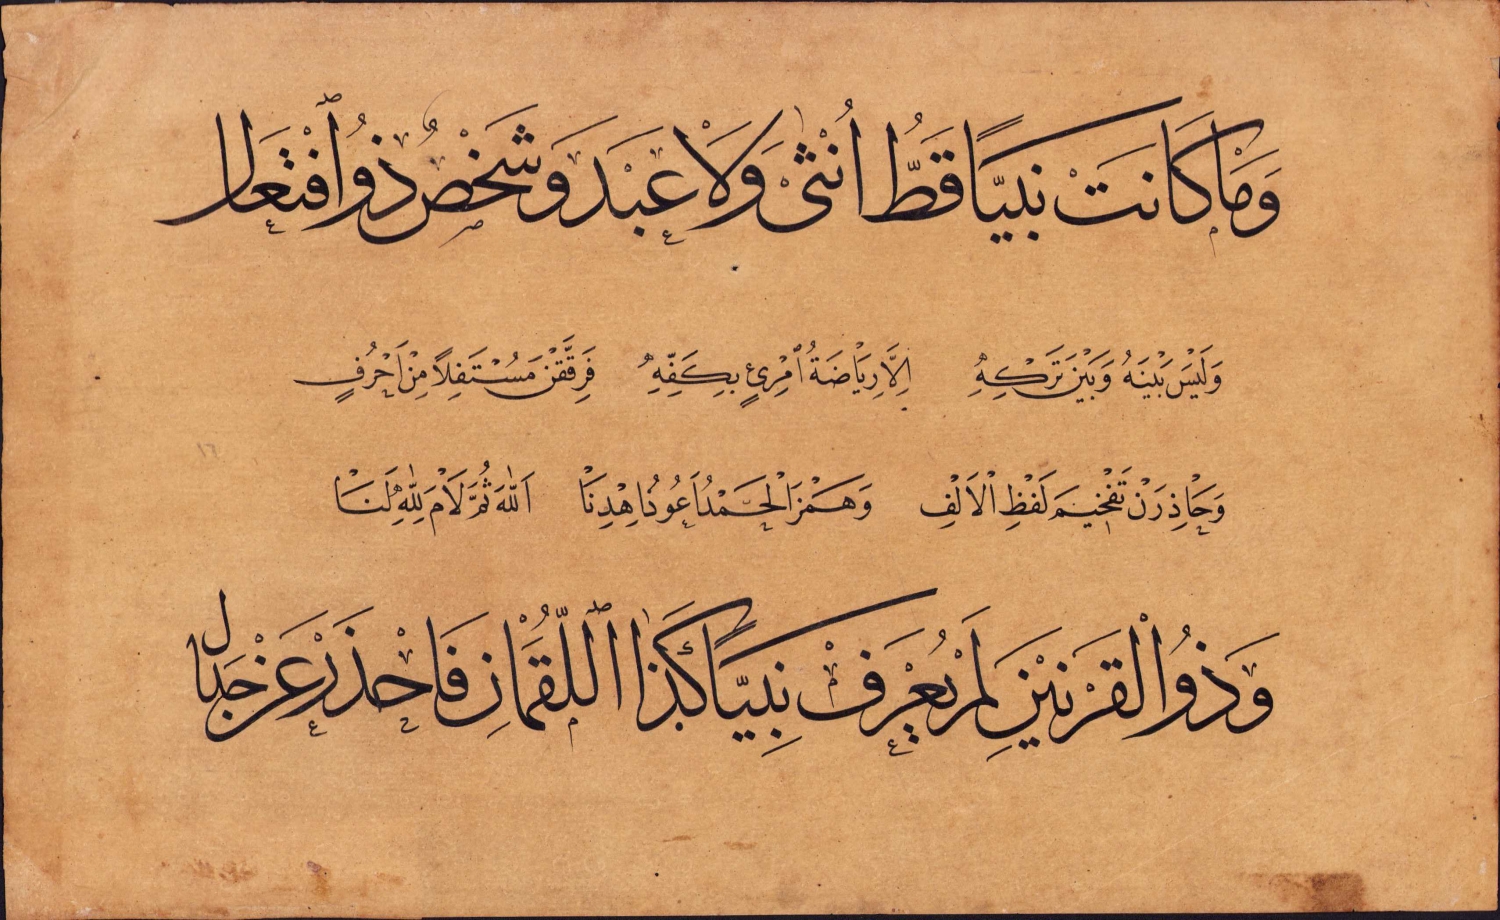 وَمَا كَانَتْ نَبِيًّا قَطُّ اُنْثٰى وَلَا عَبْدَ وَشَخْصٌ ذُو افْتِعَال
وَلَيْسَ بَيْنَهُ وَبَيْنَ تَرْكِهِ اِلَّا رِيَاضَةُ امْرِئٍ بِكَفِّهِ فَرَقِّقَنْ مُسْتَفِلًا مِنْ اَحْرُفٍ
وَحَاذِرَنْ تَفْخِيمَ لَفْظِ الْاَلْفِ وَهَمْزَ الْحَمْدُ اَعُوذُ اِهْدِنَا اَللّٰهَ ثُمَّ لَامَ لِلّٰهِ لَنَا
وَذُو الْقَرْنَيْنِ لَمْ يُعْرَفْ نَبِيًّا كَذَا اللُّقْمَانِ فَاحْذَرْ عَنْ جِدَال